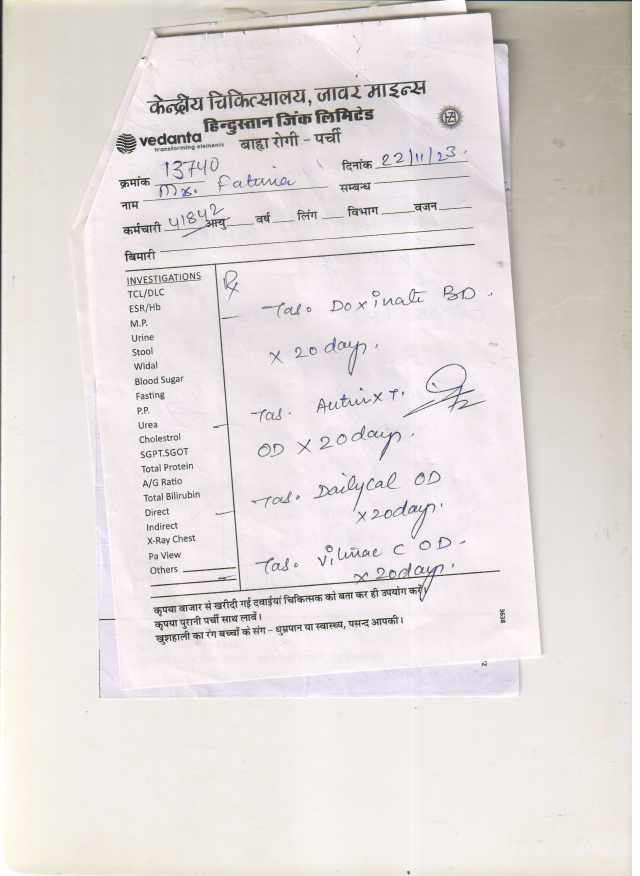 केन्द्रीय चिकित्सालय, जावर माइन्स
हिन्दुस्तान जिंक लिमिटेड
vedanta
transforming elements
बाह्य रोगी - पर्ची
HZL
क्रमांक 13740 दिनांक 22/11/23.
नाम सम्बन्ध
कर्मचारी 41842 आयु वर्ष लिंग विभाग वजन
बिमारी
INVESTIGATIONS
TCL/DLC
ESR/Hb
M.P.
Urine
Stool
Widal
Blood Sugar
Fasting
P.P.
Urea
Cholestrol
SGPT.SGOT
Total Protein
A/G Ratio
Total Bilirubin
Direct
Indirect
X-Ray Chest
Pa View
Others
Rx
Tab. Doxinate BD.
x 20 days.
Tab.
OD x 20 days.
Tab. Dailycal OD
x 20 days.
Tab. C OD.
x 20 days.
कृपया बाजार से खरीदी गई दवाईयां चिकित्सक को बता कर ही उपयोग करें।
कृपया पुरानी पर्ची साथ लावें।
खुशहाली का रंग बच्चों के संग - धुम्रपान या स्वास्थ्य, पसन्द आपकी।